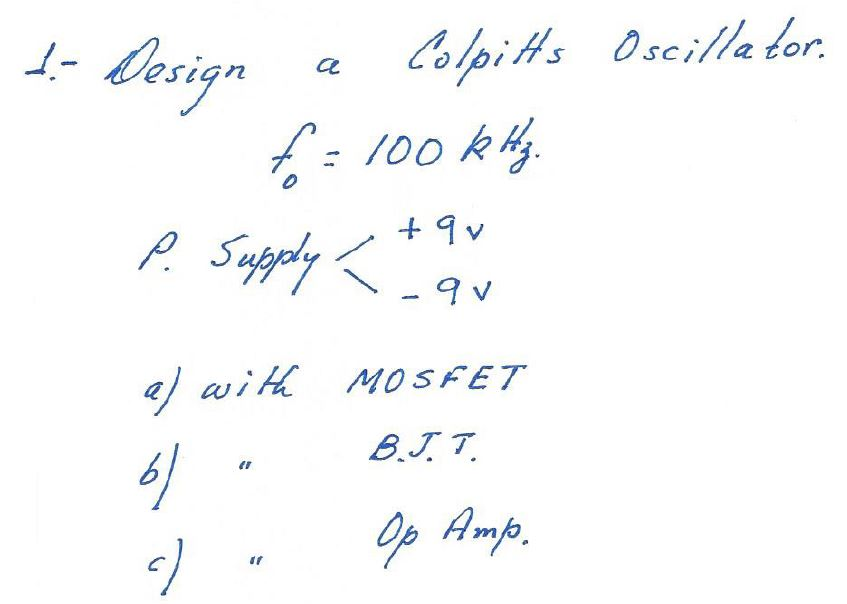 1.- Design a Colpitts Oscillator.
f₀ = 100 kHz.
P. Supply < +9v
-9v
a) with MOSFET
b) " B.J.T.
c) " Op Amp.